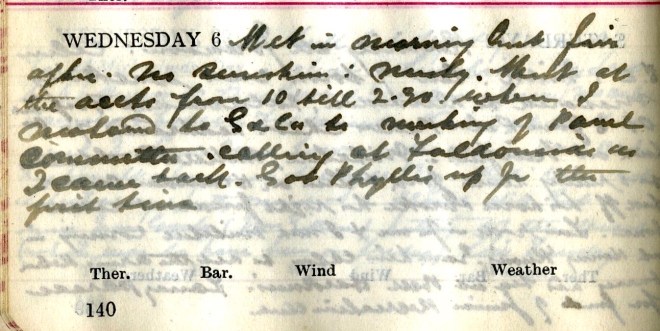 WEDNESDAY 6 Wet in morning but fine
after. No sunshine: misty. Went at
the accts from 10 till 2.90 when I
motored to to meeting of Panel
Committee. calling at as
I came back. Got Phyllis up for the
first time
Ther. Bar. Wind Weather
140